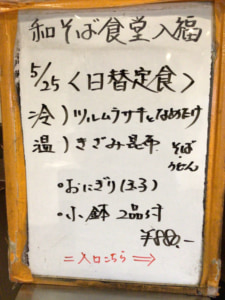 和そば食堂入福
5/25〈日替定食〉
冷）ツルムラサキとなめたけ
温）きざみ昆布 そば
うどん
・おにぎり(33)
・小鉢 2品付
¥880.-
=入口こちら⇒